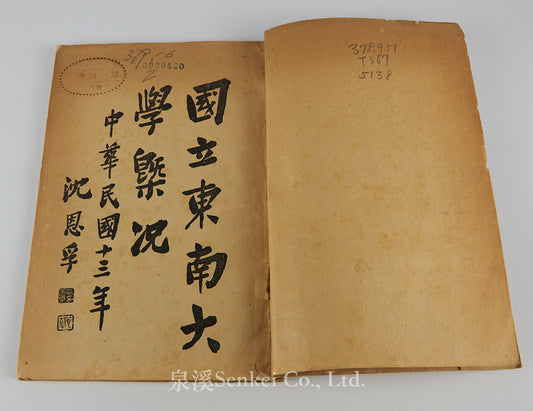 國立東南大
學槩况
中華民國十三年
沈恩孚
0000420
2
378.951
T567
5138
泉溪Senkei Co., Ltd.